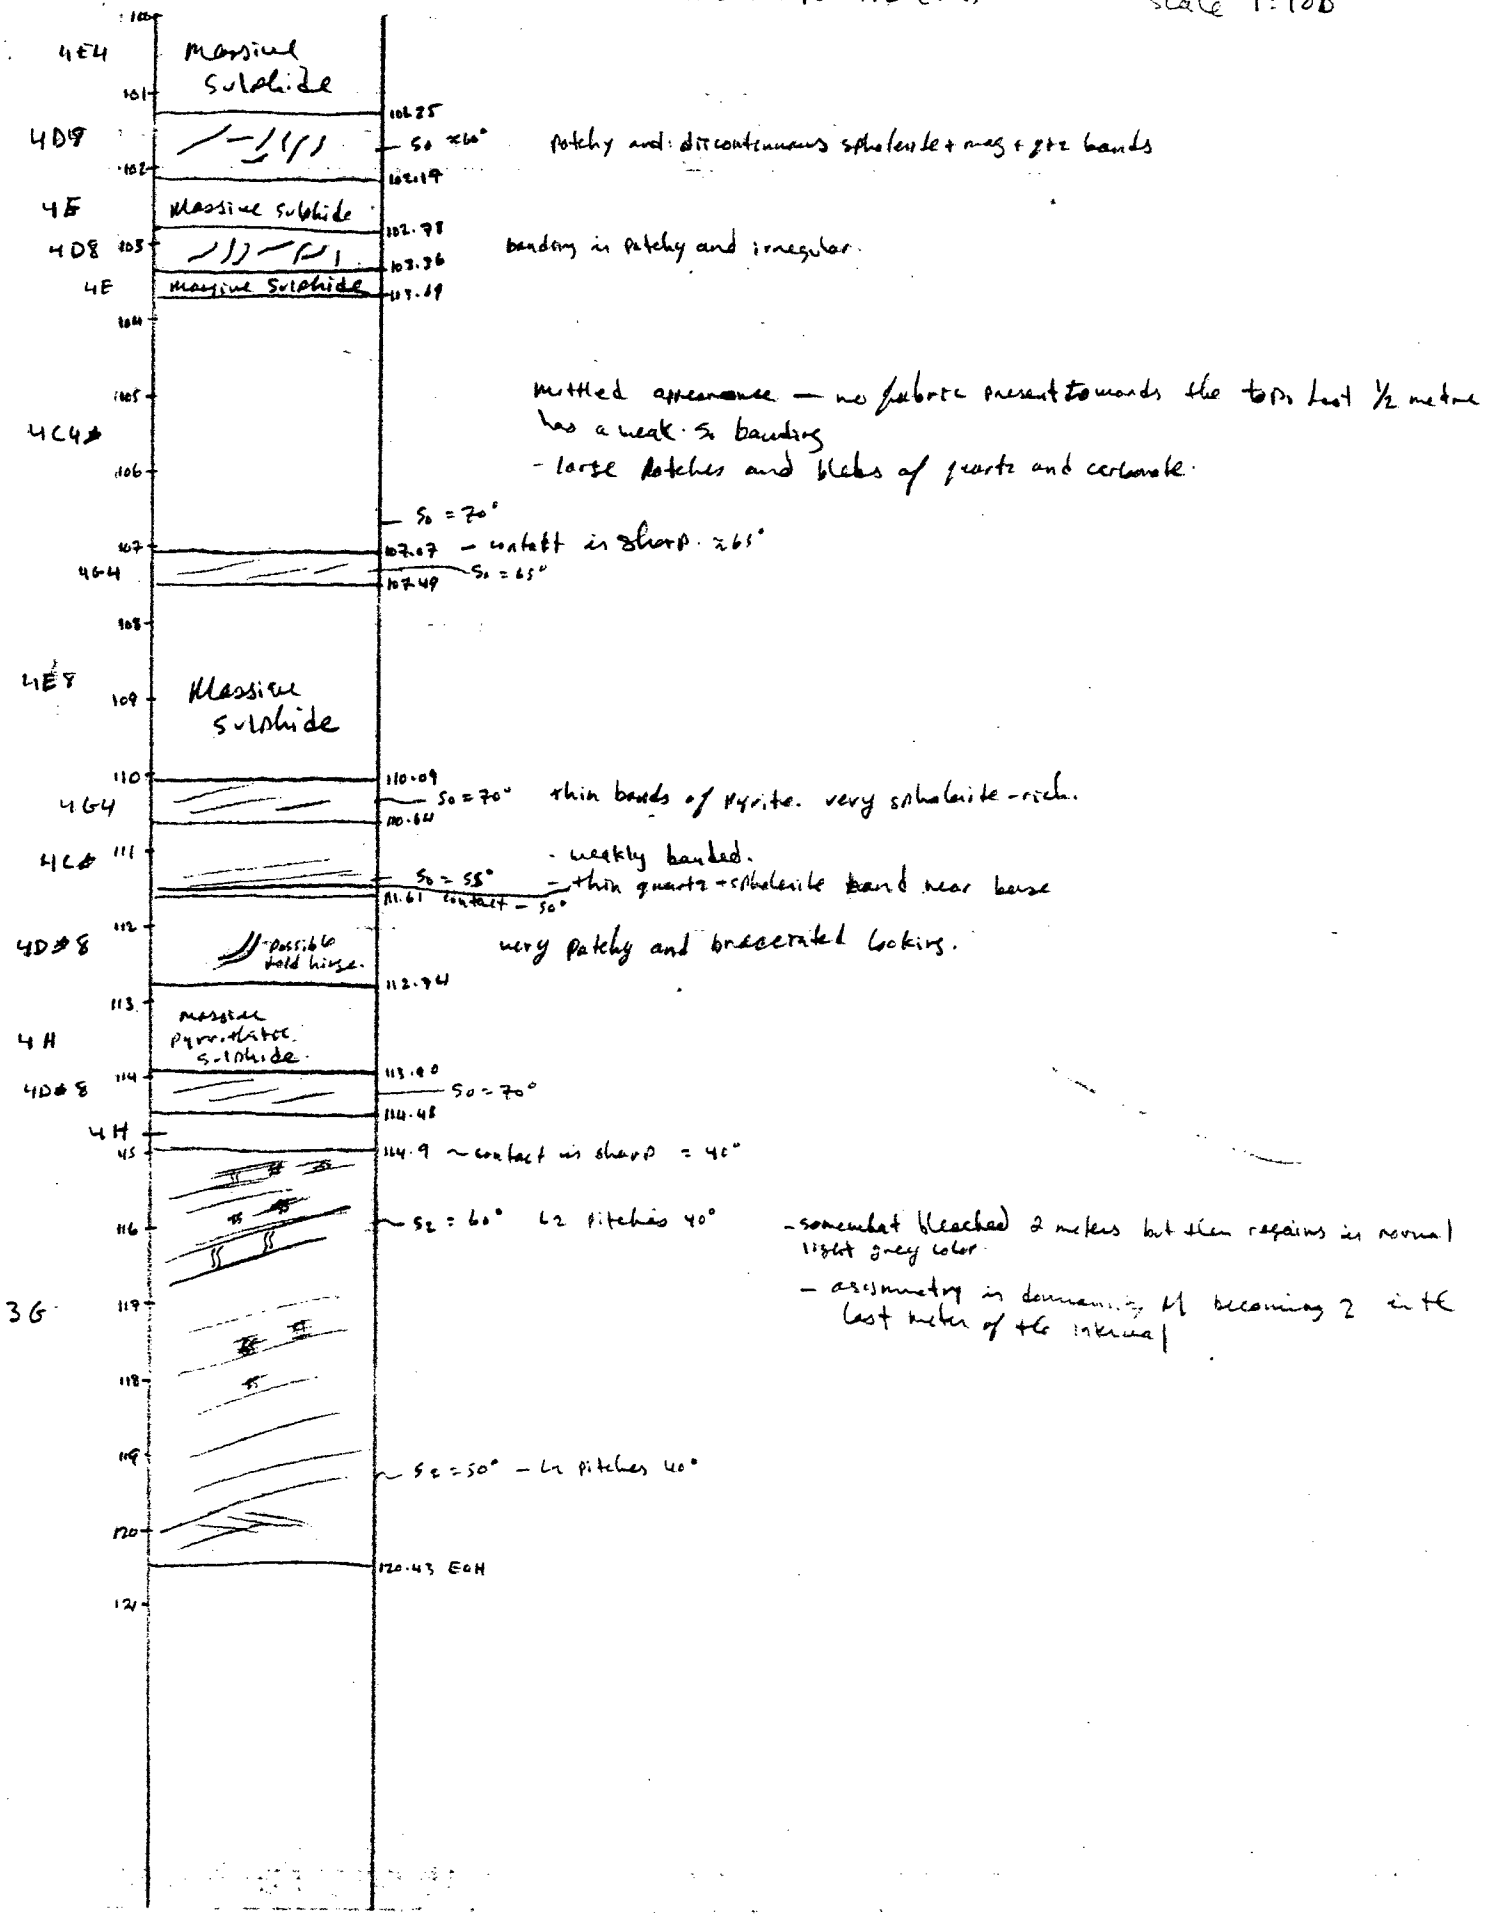 scale 1:100
100
4E4
Massive
Sulphide
101
101.25
4D8
S0 ≈60° patchy and discontinuous sphalerite + mag + qtz bands
102
102.19
4E
Massive Sulphide
102.78
4D8
103
banding is patchy and irregular.
103.36
4E
Massive Sulphide
103.69
104
105
mottled appearance — no fabric present towards the top. Last 1/2 metre
4C4
has a weak S0 banding
106
- large patches and blebs of quartz and carbonate.
S0 = 70°
107
107.07 - contact is sharp ≈65°
4G4
S0 = 65°
107.49
108
4E8
109
Massive
Sulphide
110
110.09
4G4
S0 = 70° thin bands of pyrite. very sphalerite-rich.
110.64
4C
111
- weakly banded.
S0 = 55° - thin quartz + sphalerite band near base
111.61 contact - 50°
112
4D 8
possible
fold hinge.
very patchy and breccerated looking.
112.74
113
4H
massive
pyrrhotitic
sulphide.
113.90
4D 8
114
S0 = 70°
114.48
4H
114.9 ~ contact is sharp = 40°
116
S2 = 60° L2 pitches 40°
- somewhat bleached 2 meters but then regains is normal
light grey color.
3G
117
- assymetry is M becoming Z in the
last meter of the interval
118
119
S2 = 50° - L2 pitches 40°
120
120.43 EOH
121